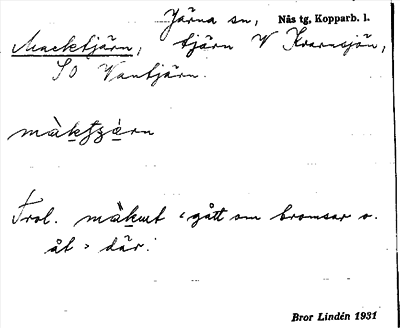 Järna sn, Näs tg, Kopparb. l.
Macktjärn, tjärn V Kvarnsjön,
SO Vantjärn.
màktjärn
Trol. mäkut "gått om bromsar o.
åt" där.
Bror Lindén 1931